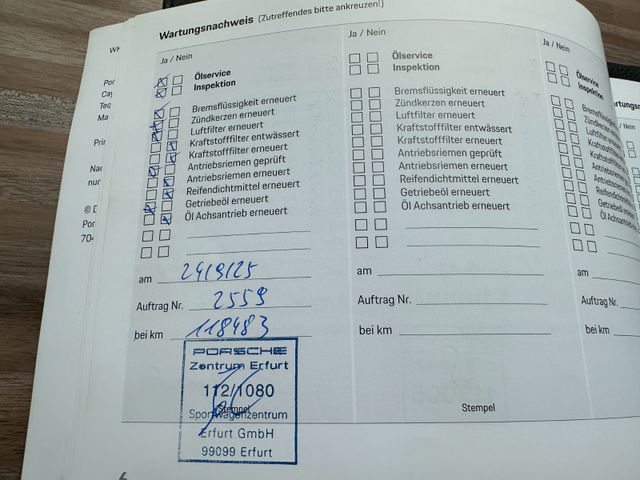 Wartungsnachweis (Zutreffendes bitte ankreuzen!)
Ja / Nein
Ölservice
Inspektion
Bremsflüssigkeit erneuert
Zündkerzen erneuert
Luftfilter erneuert
Kraftstofffilter entwässert
Kraftstofffilter erneuert
Antriebsriemen geprüft
Antriebsriemen erneuert
Reifendichtmittel erneuert
Getriebeöl erneuert
Öl Achsantrieb erneuert
am 24/9/25
Auftrag Nr. 2559
bei km 118483
PORSCHE
Zentrum Erfurt
112/1080
Stempel
Sportwagenzentrum
Erfurt GmbH
99099 Erfurt
Ja / Nein
Ölservice
Inspektion
Bremsflüssigkeit erneuert
Zündkerzen erneuert
Luftfilter erneuert
Kraftstofffilter entwässert
Kraftstofffilter erneuert
Antriebsriemen geprüft
Antriebsriemen erneuert
Reifendichtmittel erneuert
Getriebeöl erneuert
Öl Achsantrieb erneuert
am
Auftrag Nr.
bei km
Stempel
Ja / Nein
Ölservice
Inspektion
am
Auftrag Nr.
bei km